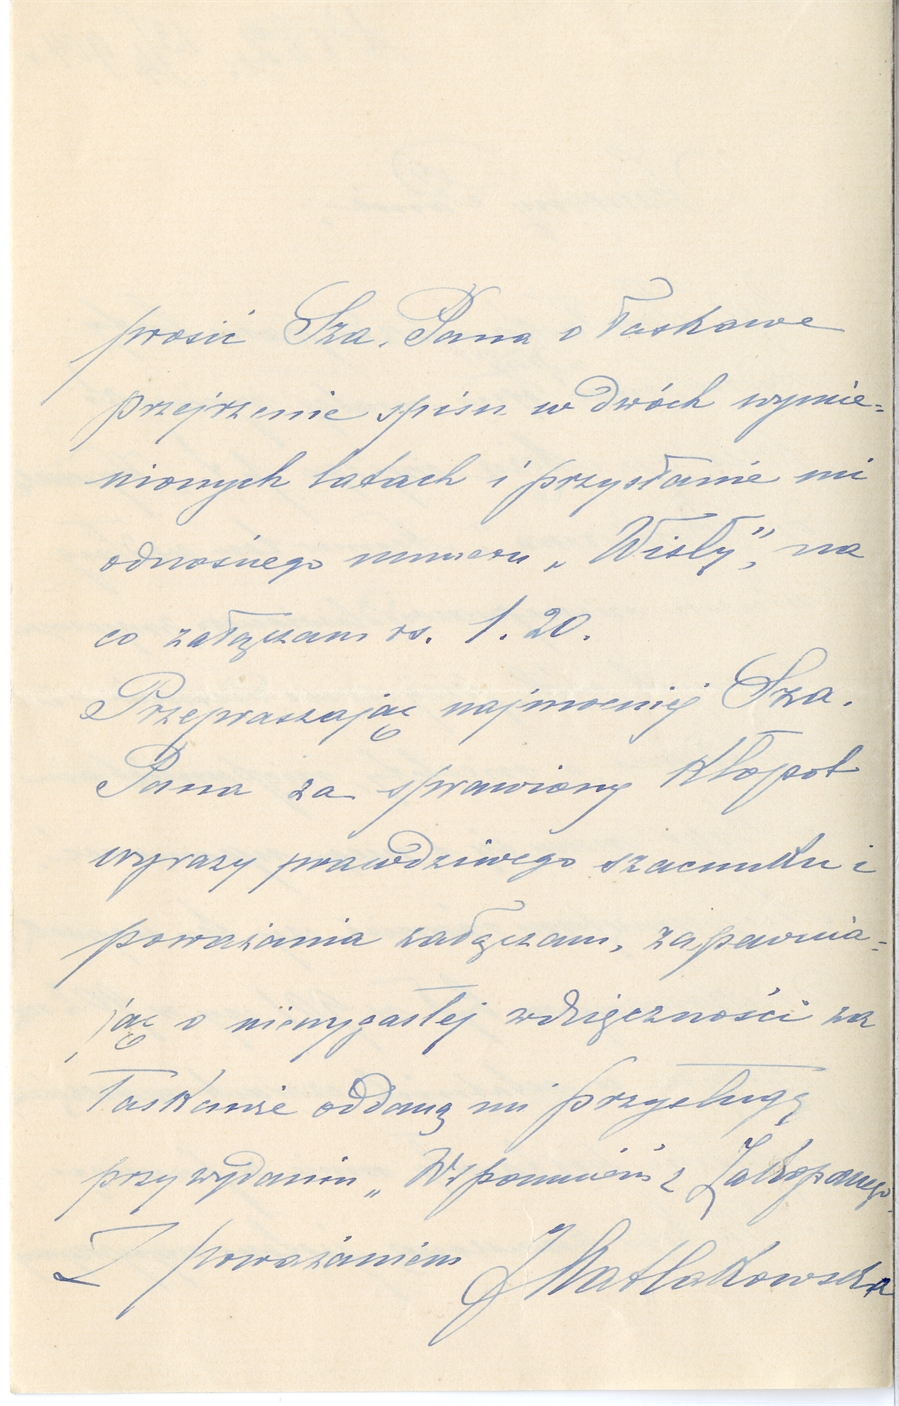 prosić Sza. Pana o łaskawe
przejrzenie spisu w dwóch wymie=
nionych latach i przysłanie mi
odnośnego numeru „Wisły”, na
co załączam rs. 1.20.
Przepraszając najmocniej Sza.
Pana za sprawiony kłopot
wyrazy prawdziwego szacunku i
poważania załączam, zapewnia=
jąc o niewygasłej wdzięczności za
łaskawie oddaną mi przysługę
przy wydaniu „Wspomnień z Zakopanego
Z poważaniem J Matlakowska